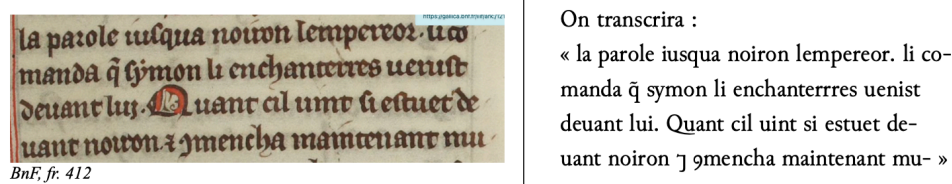 https://gallica.bnf.fr/ark:/121
la parole iuſqua noiron lempereor. li co
manda q̃ ſymon li enchanterres ueniſt
deuant lui. Quant cil uint ſi eſtuet de
uant noiron ⁊ ꝯmencha maintenant mu
BnF, fr. 412
On transcrira :
« la parole iusqua noiron lempereor. li co-
manda q̃ symon li enchanterrres uenist
deuant lui. Quant cil uint si estuet de-
uant noiron ⁊ 9mencha maintenant mu- »